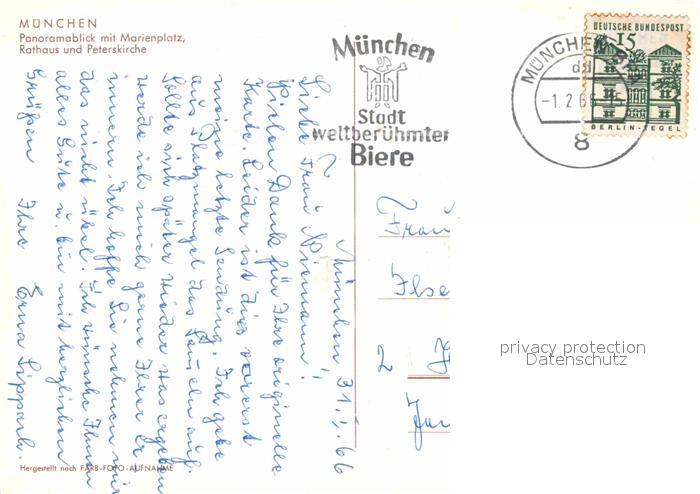 MÜNCHEN
Panoramablick mit Marienplatz,
Rathaus und Peterskirche
München
Stadt
weltberühmter
Biere
MÜNCHEN
-1.2.66-15
8
DEUTSCHE BUNDESPOST
15
BERLIN-TEGEL
München 31.1.66
Liebe Frau Niemann!
Vielen Dank für Ihre originelle
Karte. Leider ist dies vorerst
meine letzte Sendung. Ich gebe
aus Platzmangel das Sammeln auf.
Sollte sich später wieder was ergeben
werde ich mich gerne Ihrer er-
innern. Ich hoffe Sie nehmen mir
das nicht übel. Ich wünsche Ihnen
alles Gute u. bin mit herzlichen
Grüßen Ihre Erna
Frau
Ilse
2
privacy protection
Datenschutz
Hergestellt nach FARB-FOTO-AUFNAHME